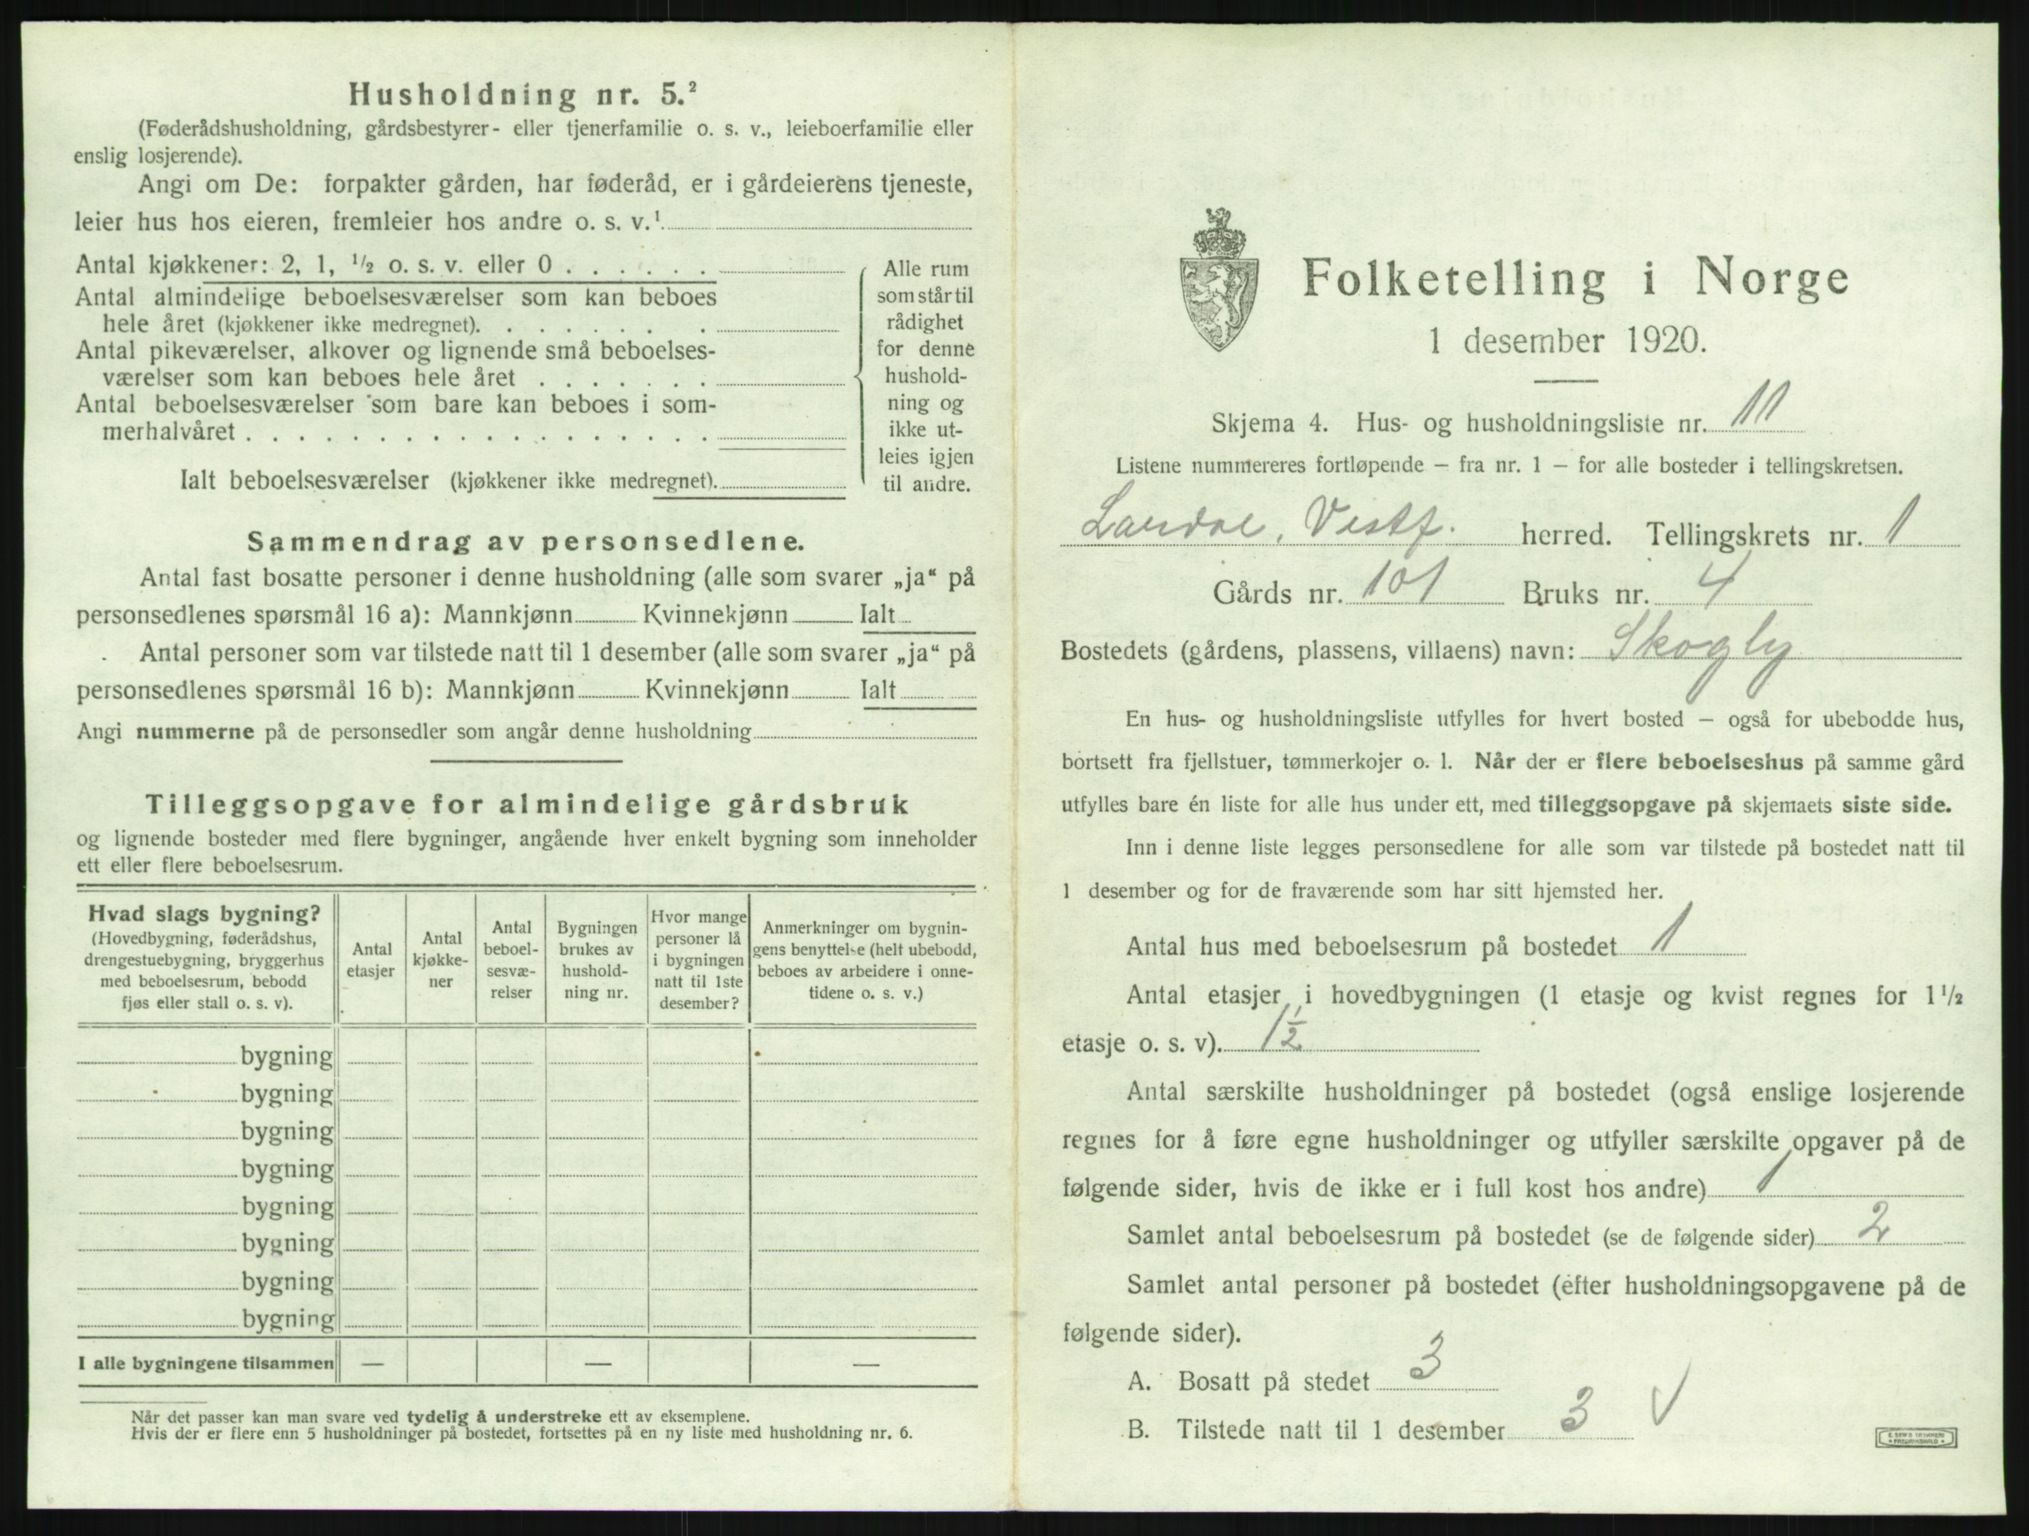 Husholdning nr. 5.²
(Føderådshusholdning, gårdsbestyrer- eller tjenerfamilie o. s. v., leieboerfamilie eller
enslig losjerende).
Angi om De: forpakter gården, har føderåd, er i gårdeierens tjeneste,
leier hus hos eieren, fremleier hos andre o. s. v.¹
Antal kjøkkener: 2, 1, ½ o. s. v. eller 0 . . . . . .
Antal almindelige beboelsesværelser som kan beboes
hele året (kjøkkener ikke medregnet). . . . . . . .
Antal pikeværelser, alkover og lignende små beboelses-
værelser som kan beboes hele året . . . . . . .
Antal beboelsesværelser som bare kan beboes i som-
merhalvåret . . . . . . . . . . . . . . . . . .
Ialt beboelsesværelser (kjøkkener ikke medregnet).
Alle rum
som står til
rådighet
for denne
hushold-
ning og
ikke ut-
leies igjen
til andre.
Sammendrag av personsedlene.
Antal fast bosatte personer i denne husholdning (alle som svarer „ja“ på
personsedlenes spørsmål 16 a): Mannkjønn Kvinnekjønn Ialt
Antal personer som var tilstede natt til 1 desember (alle som svarer „ja“ på
personsedlenes spørsmål 16 b): Mannkjønn Kvinnekjønn Ialt
Angi nummerne på de personsedler som angår denne husholdning
Tilleggsopgave for almindelige gårdsbruk
og lignende bosteder med flere bygninger, angående hver enkelt bygning som inneholder
ett eller flere beboelsesrum.
Hvad slags bygning?
(Hovedbygning, føderådshus,
drengestuebygning, bryggerhus
med beboelsesrum, bebodd
fjøs eller stall o. s. v).
Antal
etasjer
Antal
kjøkke-
ner
Antal
beboel-
sesvæ-
relser
Bygningen
brukes av
hushold-
ning nr.
Hvor mange
personer lå
i bygningen
natt til 1ste
desember?
Anmerkninger om bygnin-
gens benyttelse (helt ubebodd,
beboes av arbeidere i onne-
tidene o. s. v.)
bygning
bygning
bygning
bygning
bygning
bygning
bygning
bygning
I alle bygningene tilsammen — — —
Når det passer kan man svare ved tydelig å understreke ett av eksemplene.
Hvis der er flere enn 5 husholdninger på bostedet, fortsettes på en ny liste med husholdning nr. 6.
Folketelling i Norge
1 desember 1920.
Skjema 4. Hus- og husholdningsliste nr. 11
Listene nummereres fortløpende – fra nr. 1 – for alle bosteder i tellingskretsen.
Lardal, Vestf. herred. Tellingskrets nr. 1
Gårds nr. 101 Bruks nr. 4
Bostedets (gårdens, plassens, villaens) navn: Skogly
En hus- og husholdningsliste utfylles for hvert bosted – også for ubebodde hus,
bortsett fra fjellstuer, tømmerkojer o. l. Når der er flere beboelseshus på samme gård
utfylles bare én liste for alle hus under ett, med tilleggsopgave på skjemaets siste side.
Inn i denne liste legges personsedlene for alle som var tilstede på bostedet natt til
1 desember og for de fraværende som har sitt hjemsted her.
Antal hus med beboelsesrum på bostedet 1
Antal etasjer i hovedbygningen (1 etasje og kvist regnes for 1½
etasje o. s. v). 1½
Antal særskilte husholdninger på bostedet (også enslige losjerende
regnes for å føre egne husholdninger og utfyller særskilte opgaver på de
følgende sider, hvis de ikke er i full kost hos andre) 1
Samlet antal beboelsesrum på bostedet (se de følgende sider) 2
Samlet antal personer på bostedet (efter husholdningsopgavene på de
følgende sider).
A. Bosatt på stedet 3
B. Tilstede natt til 1 desember 3 √